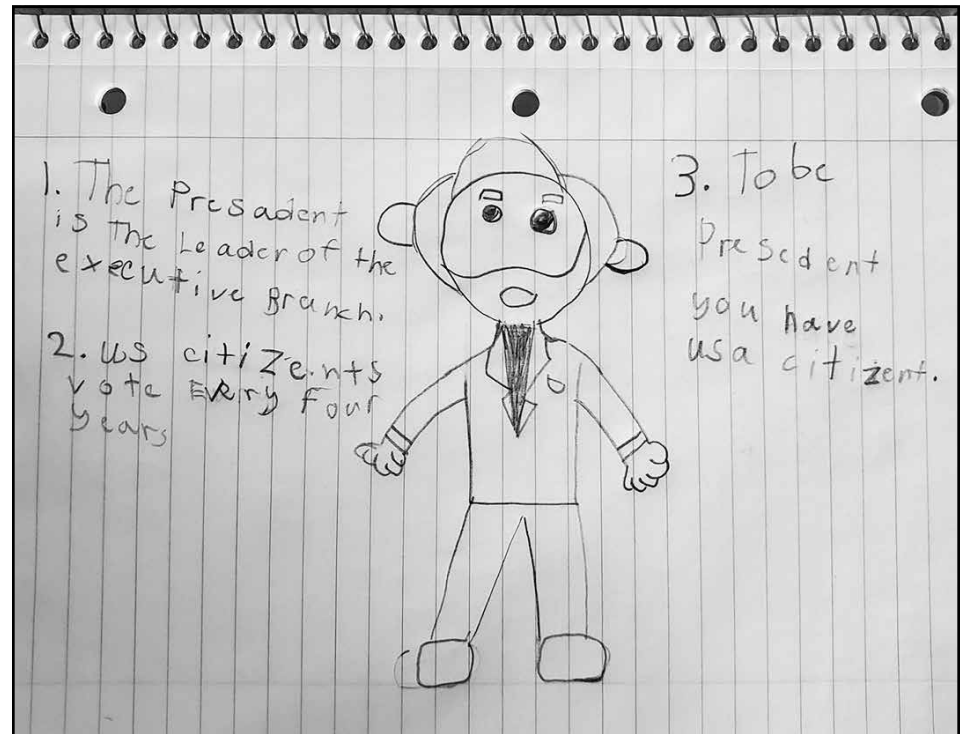 1. The Presadent
is the Leader of the
executive Branch.
2. us citizents
vote Every four
years
3. To be
Presedent
you have
usa citizent.